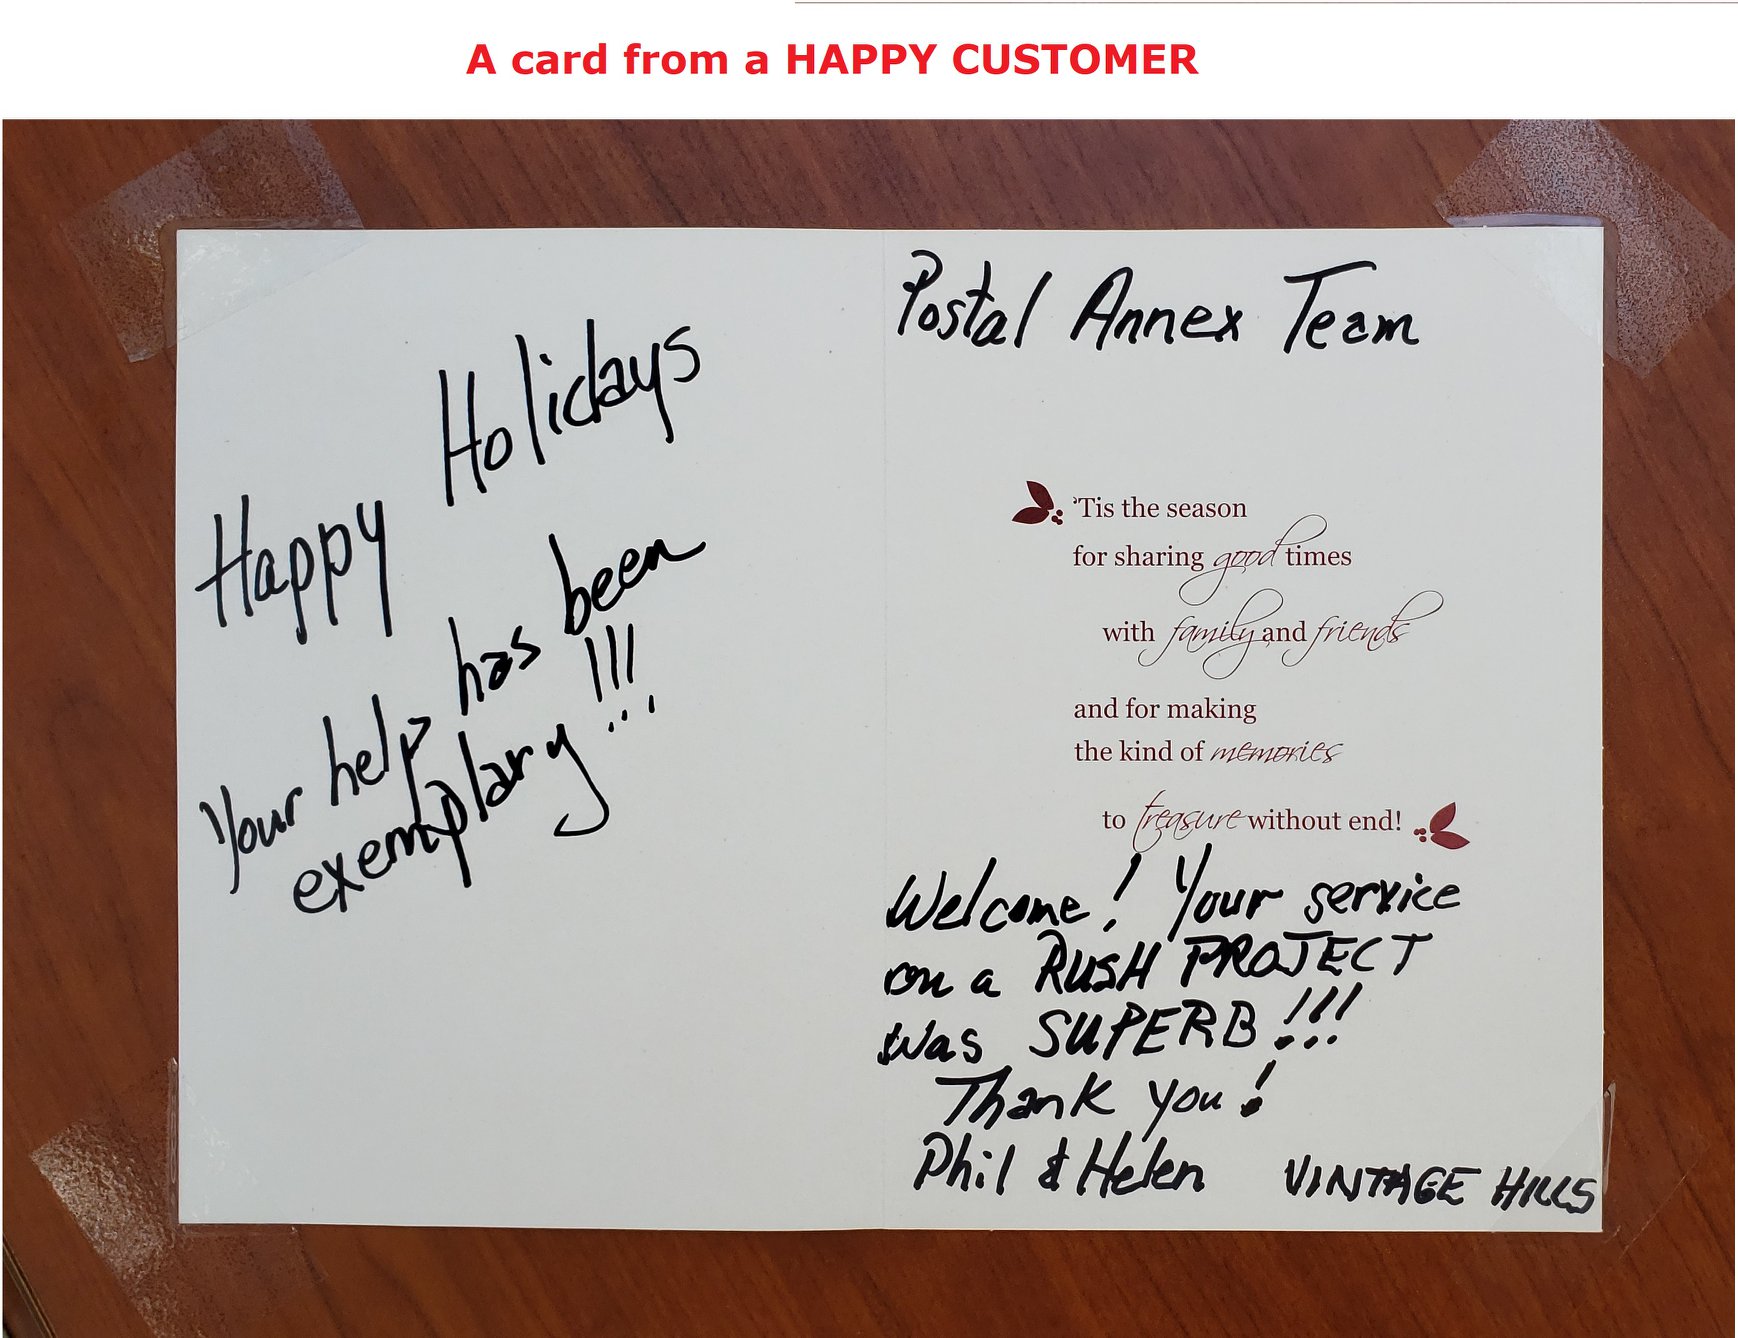 A card from a HAPPY CUSTOMER
Happy Holidays
Your help has been
exemplary!!!
Postal Annex Team
'Tis the season
for sharing good times
with family and friends
and for making
the kind of memories
to treasure without end!
Welcome! Your service
on a RUSH PROJECT
was SUPERB!!!
Thank you!
Phil & Helen VINTAGE HILLS